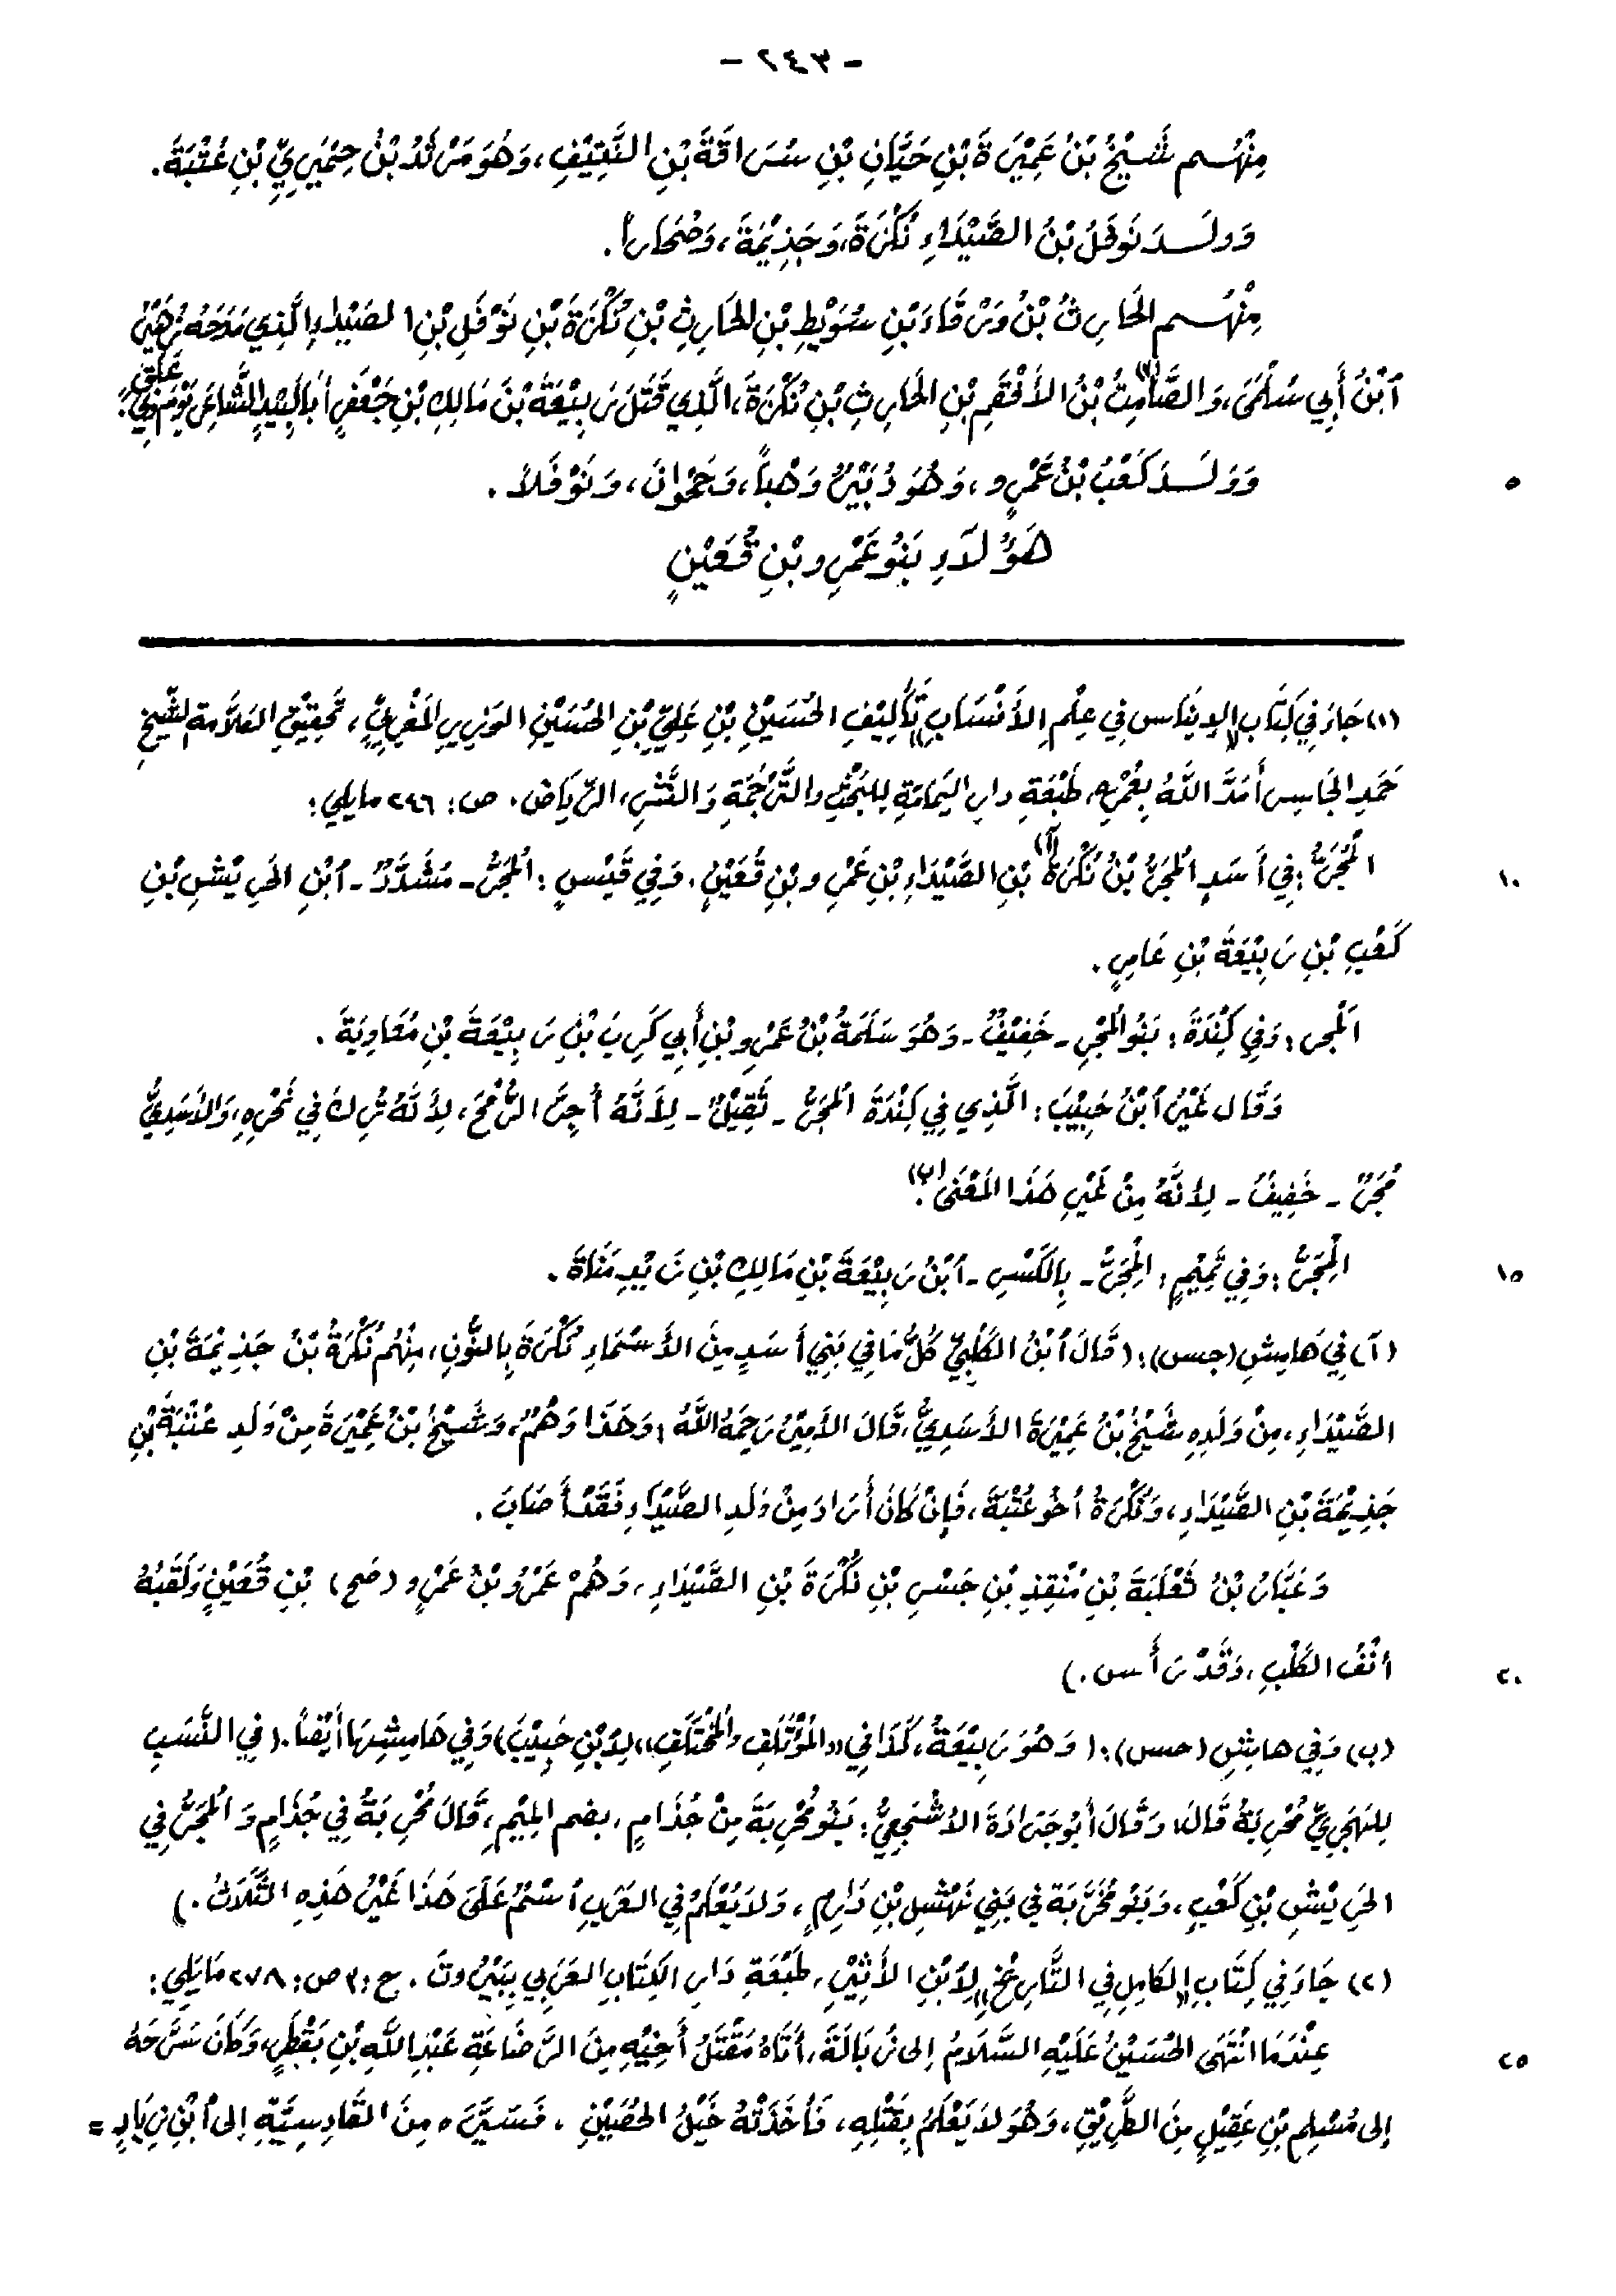 - ٢٤٣ -
مِنْهُم شَيْخُ بْنُ عَمِيْرَةَ بْنِ حَيَّانِ بْنِ سُرَاقَةَ بْنِ النَّتِيْفِ، وَهُوَ مَرْثَدُ بْنُ حِمْيَرِيِّ بْنِ عُتْبَةَ.
وَوَلَدَ نَوْفَلُ بْنُ الصَّيْدَاءِ نُكْرَةَ، وَجَذِيْمَةَ، وَضُحَاراً.
مِنْهُم الحَارِثُ بْنُ وَرْقَاءَ بْنِ سُوَيْطِ بْنِ الحَارِثِ بْنِ نُكْرَةَ بْنِ نَوْفَلِ بْنِ الصَيْدَاءِ الَّذِي مَدَحَهُ زُهَيْرُ
ٱبْنُ أَبِي سُلْمَىَ، وَالصَّامِتُ(١) بْنُ الأَفْقَمِ بْنِ الحَارِثِ بْنِ نُكْرَةَ، الَّذِي قَتَلَ رَبِيْعَةَ بْنَ مَالِكِ بْنِ جَعْفَرٍ أَبَا لَبِيْدٍ الشَّاعِرَ يَوْمَ ذِي عَلَقٍ.
٥ وَوَلَدَ كَعْبُ بْنُ عَمْرٍو، وَهُوَ دُبَيْرٌ وَهْباً، وَجَحْوَانَ، وَنَوْفَلاً.
هَؤُلاَءِ بَنُو عَمْرِو بْنِ قُعَيْنٍ
(١) جَاءَ فِي كِتَابِ «الإِينَاسِ فِي عِلْمِ الأَنْسَابِ» تَأْلِيْفِ الحُسَيْنِ بْنِ عَلِيِّ بْنِ الحُسَيْنِ الوَزِيرِ المَغْرِبِيِّ، تَحْقِيْقِ العَلاَّمةِ الشَّيخِ
حَمَدِ الجَاسِرِ أَمَدَّ اللَّهُ بِعُمْرِهِ، طَبْعَةِ دارِ اليَمَامَةِ لِلبَحْثِ والتَّرْجَمَةِ وَالنَّشْرِ، الرِّيَاض. ص: ٢٤٦ مايلي:
١٠ المُجَرُّ: فِي أَسَدٍ المُجَرُّ بْنُ نُكْرَةَ(آ) بْنِ الصَّيْدَاءِ بْنِ عَمْرِو بْنِ قُعَيْنٍ. وَفِي قَيْسٍ: المُجَرُّ - مُشَدَّدٌ - ٱبْنِ الحَرِيْشِ بْنِ
كَعْبِ بْنِ رَبِيْعَةَ بْنِ عَامِرٍ.
المجر: وَفِي كِنْدَةَ: بَنُو المَجْرِ - خَفِيْفٌ - وَهُوَ سَلَمَةُ بْنُ عَمْرِو بْنِ أَبِي كَرِبَ بْنِ رَبِيْعَةَ بْنِ مُعَاوِيَةَ.
وَقَال غَيْرُ ٱبْنُ حَبِيْبَ: الَّذِي فِي كِنْدَةَ المُجَرُّ - ثَقِيْلٌ - لِأَنَّهُ أُجِرَّ الرُّمْحَ، لِأَنَّهُ تُرِكَ فِي نَحْرِهِ، وَالأَسَدِيُّ
مُجَرٌ - خَفِيفٌ - لِأَنَّهُ مِنْ غَيْرِ هَذَا المَعْنَى(ب).
١٥ المِجَرُّ: وَفِي تَمِيْمٍ: المِجَرُّ - بِالكَسْرِ - ٱبْنُ رَبِيْعَةَ بْنِ مَالِكِ بْنِ زَيْدِ مَنَاةَ.
(آ) فِي هَامِشِ (جس): (قَالَ ٱبْنُ الكَلْبِيِّ كُلُّ مَا فِي بَنِي أَسَدٍ مِنَ الأَسْمَاءِ نُكْرَةَ بِالنُّونِ، مِنْهُم نُكْرَةُ بْنُ جَذِيْمَةَ بْنِ
الصَّيْدَاءِ، مِنْ وَلَدِهِ شَيْخُ بْنُ عَمِيْرَةَ الأَسَدِيُّ، قَالَ الأَمِيْرُ رَحِمَهُ اللَّهُ: وَهَذَا وَهْمٌ، وَشَيْخُ بْنُ عَمِيْرَةَ مِنْ وَلَدِ عُتْبَةَ بْنِ
جَذِيْمَةَ بْنِ الصَّيْدَاءِ، وَنُكْرَةُ أَخُو عُتْبَةَ، فَإِنْ كَانَ أَرَادَ مِنْ وَلَدِ الصَّيْدَاءِ فَقَدْ أَصَابَ.
وَعَبَّادُ بْنُ ثَعْلَبَةَ بْنِ مُنْقِذِ بْنِ جَسْرِ بْنِ نُكْرَةَ بْنِ الصَّيْدَاءِ، وَهُمْ عَمْرُو بْنُ عَمْرٍو (صَح) بْنِ قُعَيْنٍ وَلَقَبُهُ
٢٠ أَنْفُ الكَلْبِ، وَقَدْ رَأَسَ.)
(ب) وَفِي هامِشِ (حس): (وَهُوَ رَبِيْعَةُ، كَذَا فِي «المُؤْتَلَفِ والمُخْتَلَفِ» لِابْنِ حَبِيْبَ) وَفِي هَامِشِهَا أَيْضاً. (فِي النَّسَبِ
لِلهَجَرِيِّ مُحْرِبَةُ قَالَ: وَقَالَ أَبُو جَرَادَةَ الأَشْجَعِيُّ: بَنُو مُحْرِبَةَ مِنْ جُذَامٍ، بضم المِيْمِ، قَالَ مُحْرِبَةُ فِي جُذَامٍ وَالمُجَرُّ فِي
الحَرِيْشِ بْنِ كَعْبٍ، وَبَنُو مُخَرَّبَة فِي بَنِي نَهْشَلِ بْنِ دَارِمٍ، وَلاَ يُعْلَمُ فِي العَرَبِ ٱسْمٌ عَلَى هَذَا غَيْرُ هَذِهِ الثَّلاَثُ.)
(٢) جَاءَ فِي كِتَابِ «الكَامِلِ فِي التَّارِيْخِ» لِابْنِ الأَثِيْرِ، طَبْعَةِ دَارِ الكِتَابِ العَرَبِي بِبَيْرُوتَ. ج: ٣ ص: ٢٧٨ مَايَلِي:
٢٥ عِنْدَمَا انْتَهَى الحُسَيْنُ عَلَيْهِ السَّلاَمُ إلى زُبَالَةَ، أَتَاهُ مَقْتَلُ أَخِيْهِ مِنَ الرَّضَاعَةِ عَبْدِ اللَّهِ بْنِ بَقْطَرٍ، وَكَانَ سَرَّحَهُ
إلى مُسْلِمِ بْنِ عَقِيْلٍ مِنَ الطَّرِيْقِ، وَهُوَ لاَ يَعْلَمُ بِقَتْلِهِ، فَأَخَذَتْهُ خَيْلُ الحُصَيْنِ، فَسَيَّرَه مِنَ القَادِسِيَّةِ إلى ٱبْنِ زِيَادٍ =